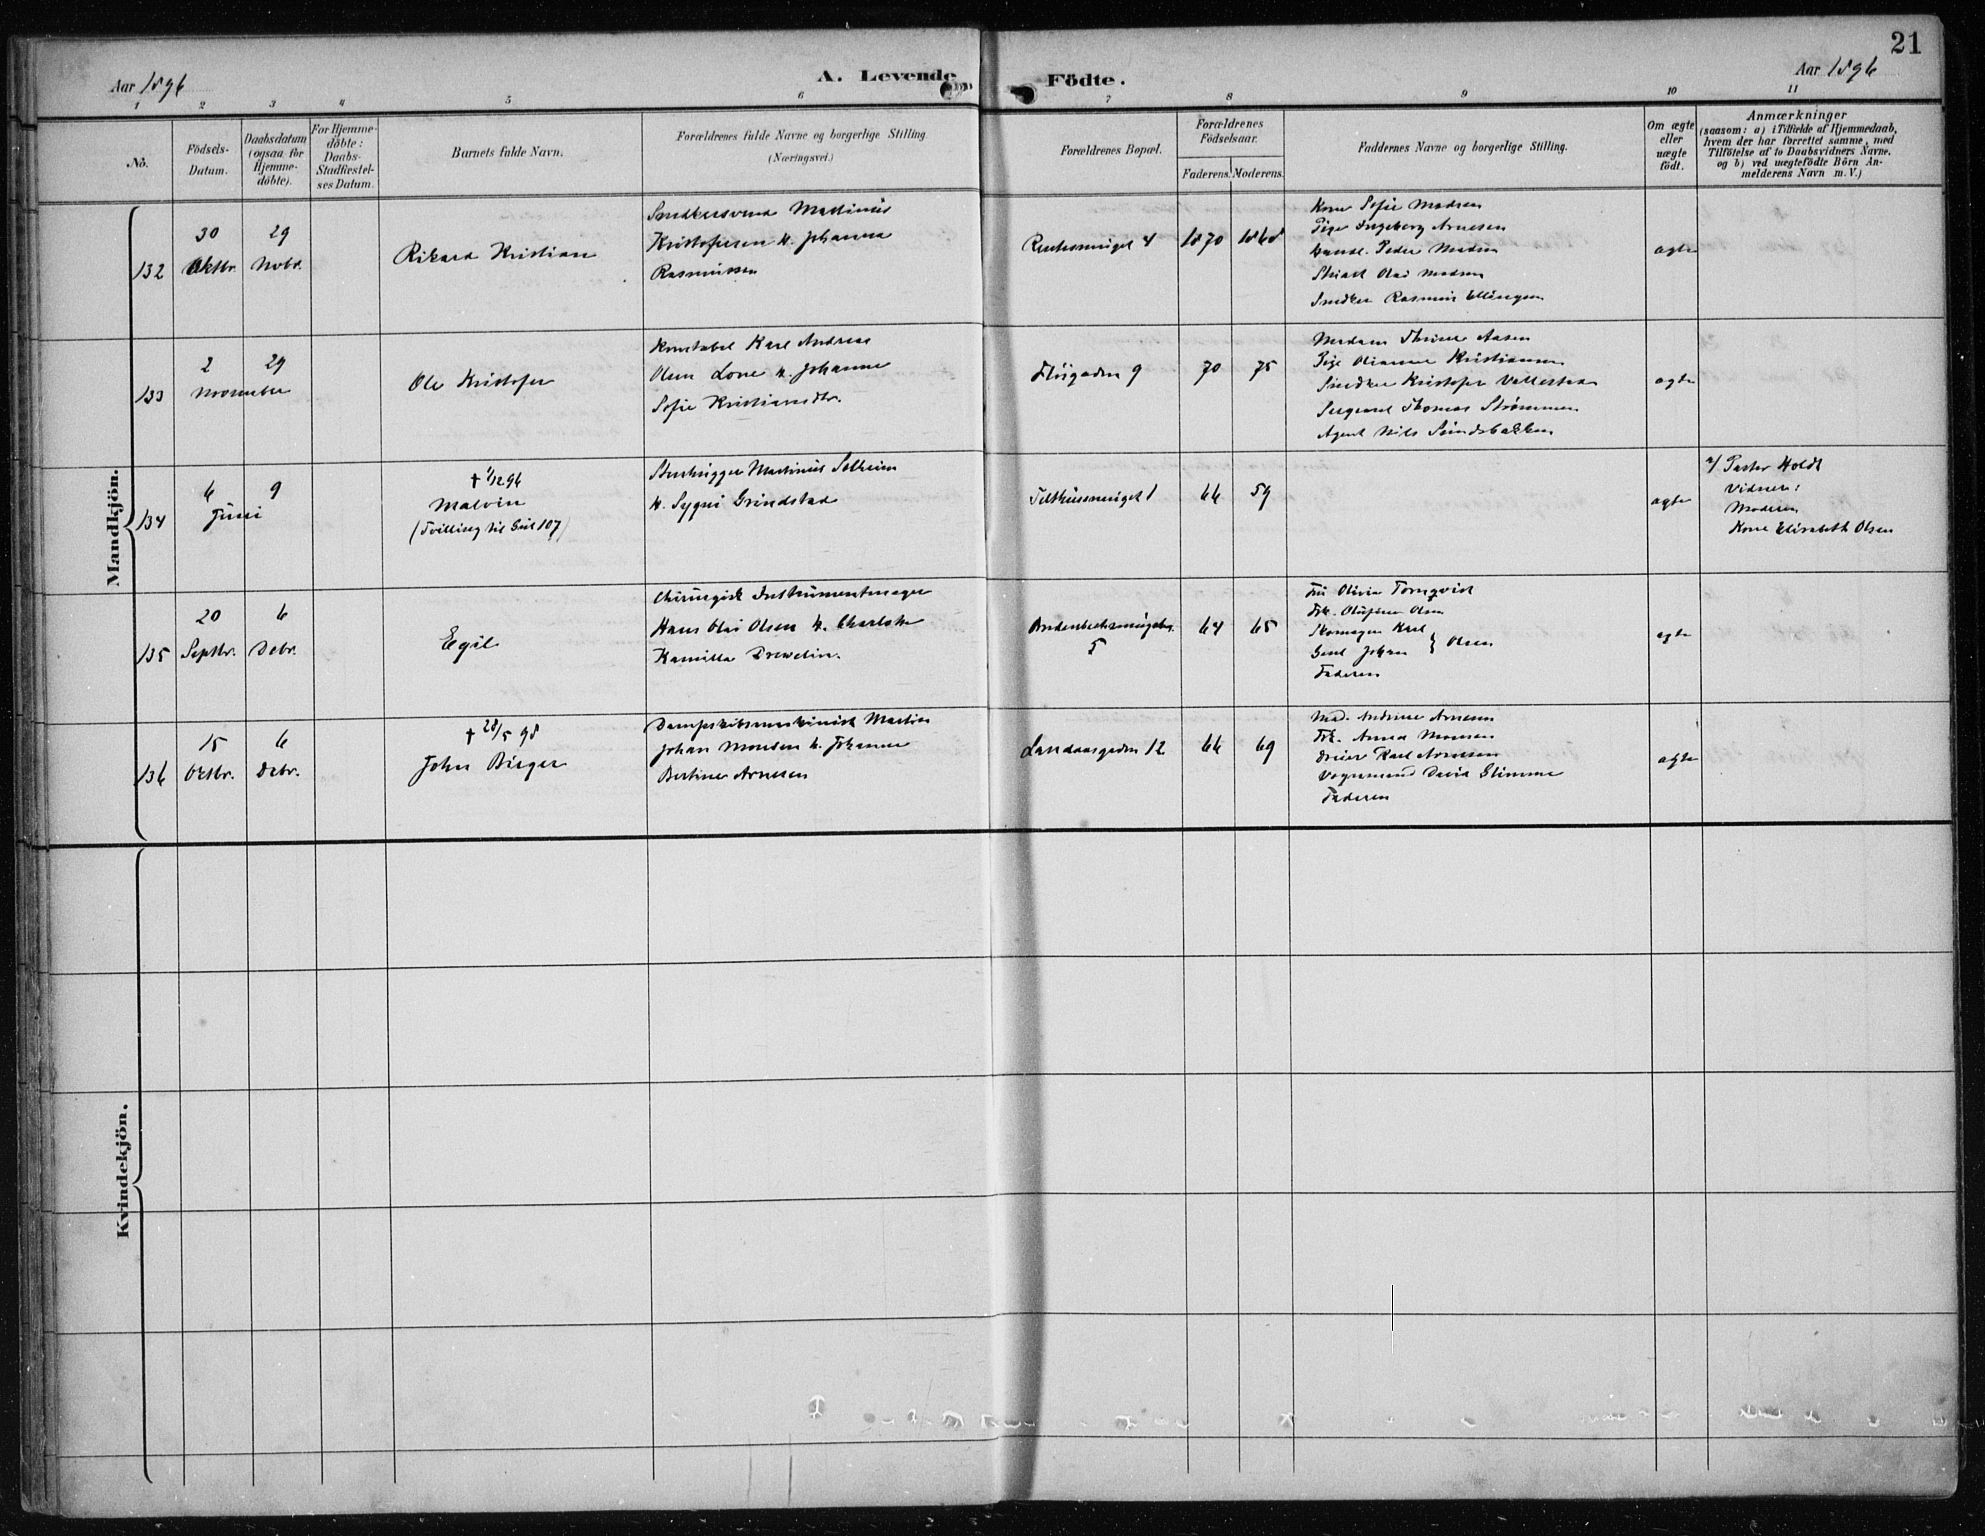 21
Aar 1896
A. Levende Födte.
Aar 1896
1 2 3 4 5 6 7 8 9 10 11
No.
Födsels-
Datum.
Daabsdatum
(ogsaa för
Hjemme-
döbte).
For Hjemme-
döbte:
Daabs-
Stadfæstel-
ses Datum.
Barnets fulde Navn.
Forældrenes fulde Navne og borgerlige Stilling.
(Næringsvei.)
Forældrenes Bopæl.
Forældrenes
Födselsaar.
Faderens. Moderens.
Faddernes Navne og borgerlige Stilling.
Om ægte
eller
uægte
födt.
Anmærkninger
(saasom: a) i Tilfælde af Hjemmedaab,
hvem der har forrettet samme, med
Tilföielse af to Daabsvidners Navne.
og b) ved uægtefödte Börn An-
melderens Navn m. V.)
Mandkjön.
132
30
Oktbr.
29
Novbr.
Rikard Kristian
Snedkersvend Martinius
Kristofersen H. Johanna
Rasmussen
4
1870
1868
Kone Sofie Madsen
Pige Ingeborg Arnesen
Handl. Peder Madsen
Olai Madsen
Snedker Rasmus Ellingsen
ægte
133
2
29
November
Ole Kristofer
Konstabel Karl Andreas
Olsen Lone H. Johanne
Sofie Kristiansdtr.
9
70
75
Madam Thrine Aasen
Pige Olianne Kristiansen
Snedker Kristofer
Sergeant Thomas Strømmen
Agent Nils Sundsbakken
ægte
134
6
9
Juni
† 1/12 96
Malvin
(Tvilling til Git 107)
Martinius Solheim
H. Sygni Grindstad
1
66
59
ægte
a/ Pastor Holdt
Vidner:
Moderen
Kone Elisabeth Olsen
135
20
Septbr.
6
Debr.
Egil
Chirurgisk Instrumentmager
Hans Olai Olsen H. Charlotte
Kamilla
5
64
65
Fru Olivia Tornqvist
Frk. Olufine Olsen
Skomager Karl
Johan } Olsen
Faderen
ægte
136
15
Oktbr.
6
Debr.
† 28/5 98
John Birger
Dampskibsmaskinist Martin
Johan Monsen H. Johanne
Bertine Arnesen
Landaasgaden 12
66
69
Mad. Andrine Arnesen
Frk. Anna Monsen
Dreier Karl Arnesen
Vognmand David Glimme
Faderen
ægte
Kvindekjön.